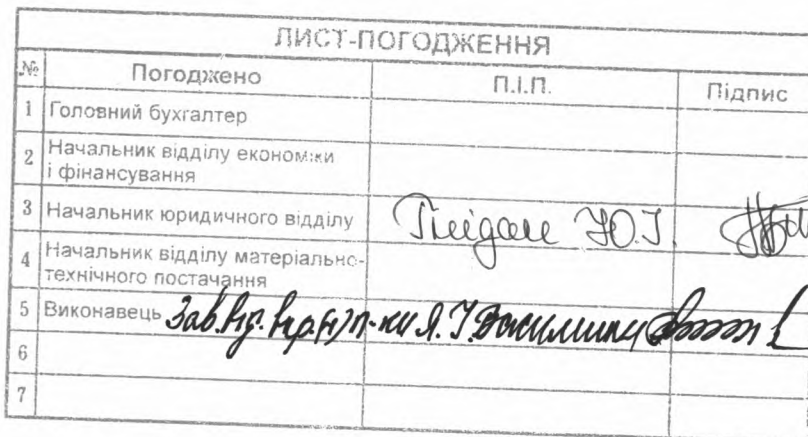 ЛИСТ-ПОГОДЖЕННЯ
№ Погоджено П.І.П. Підпис
1 Головний бухгалтер
2 Начальник відділу економіки
і фінансування
3 Начальник юридичного відділу Ю.І.
4 Начальник відділу матеріально-
технічного постачання
5 Виконавець Зав. від. п-ки Я. І.
6
7